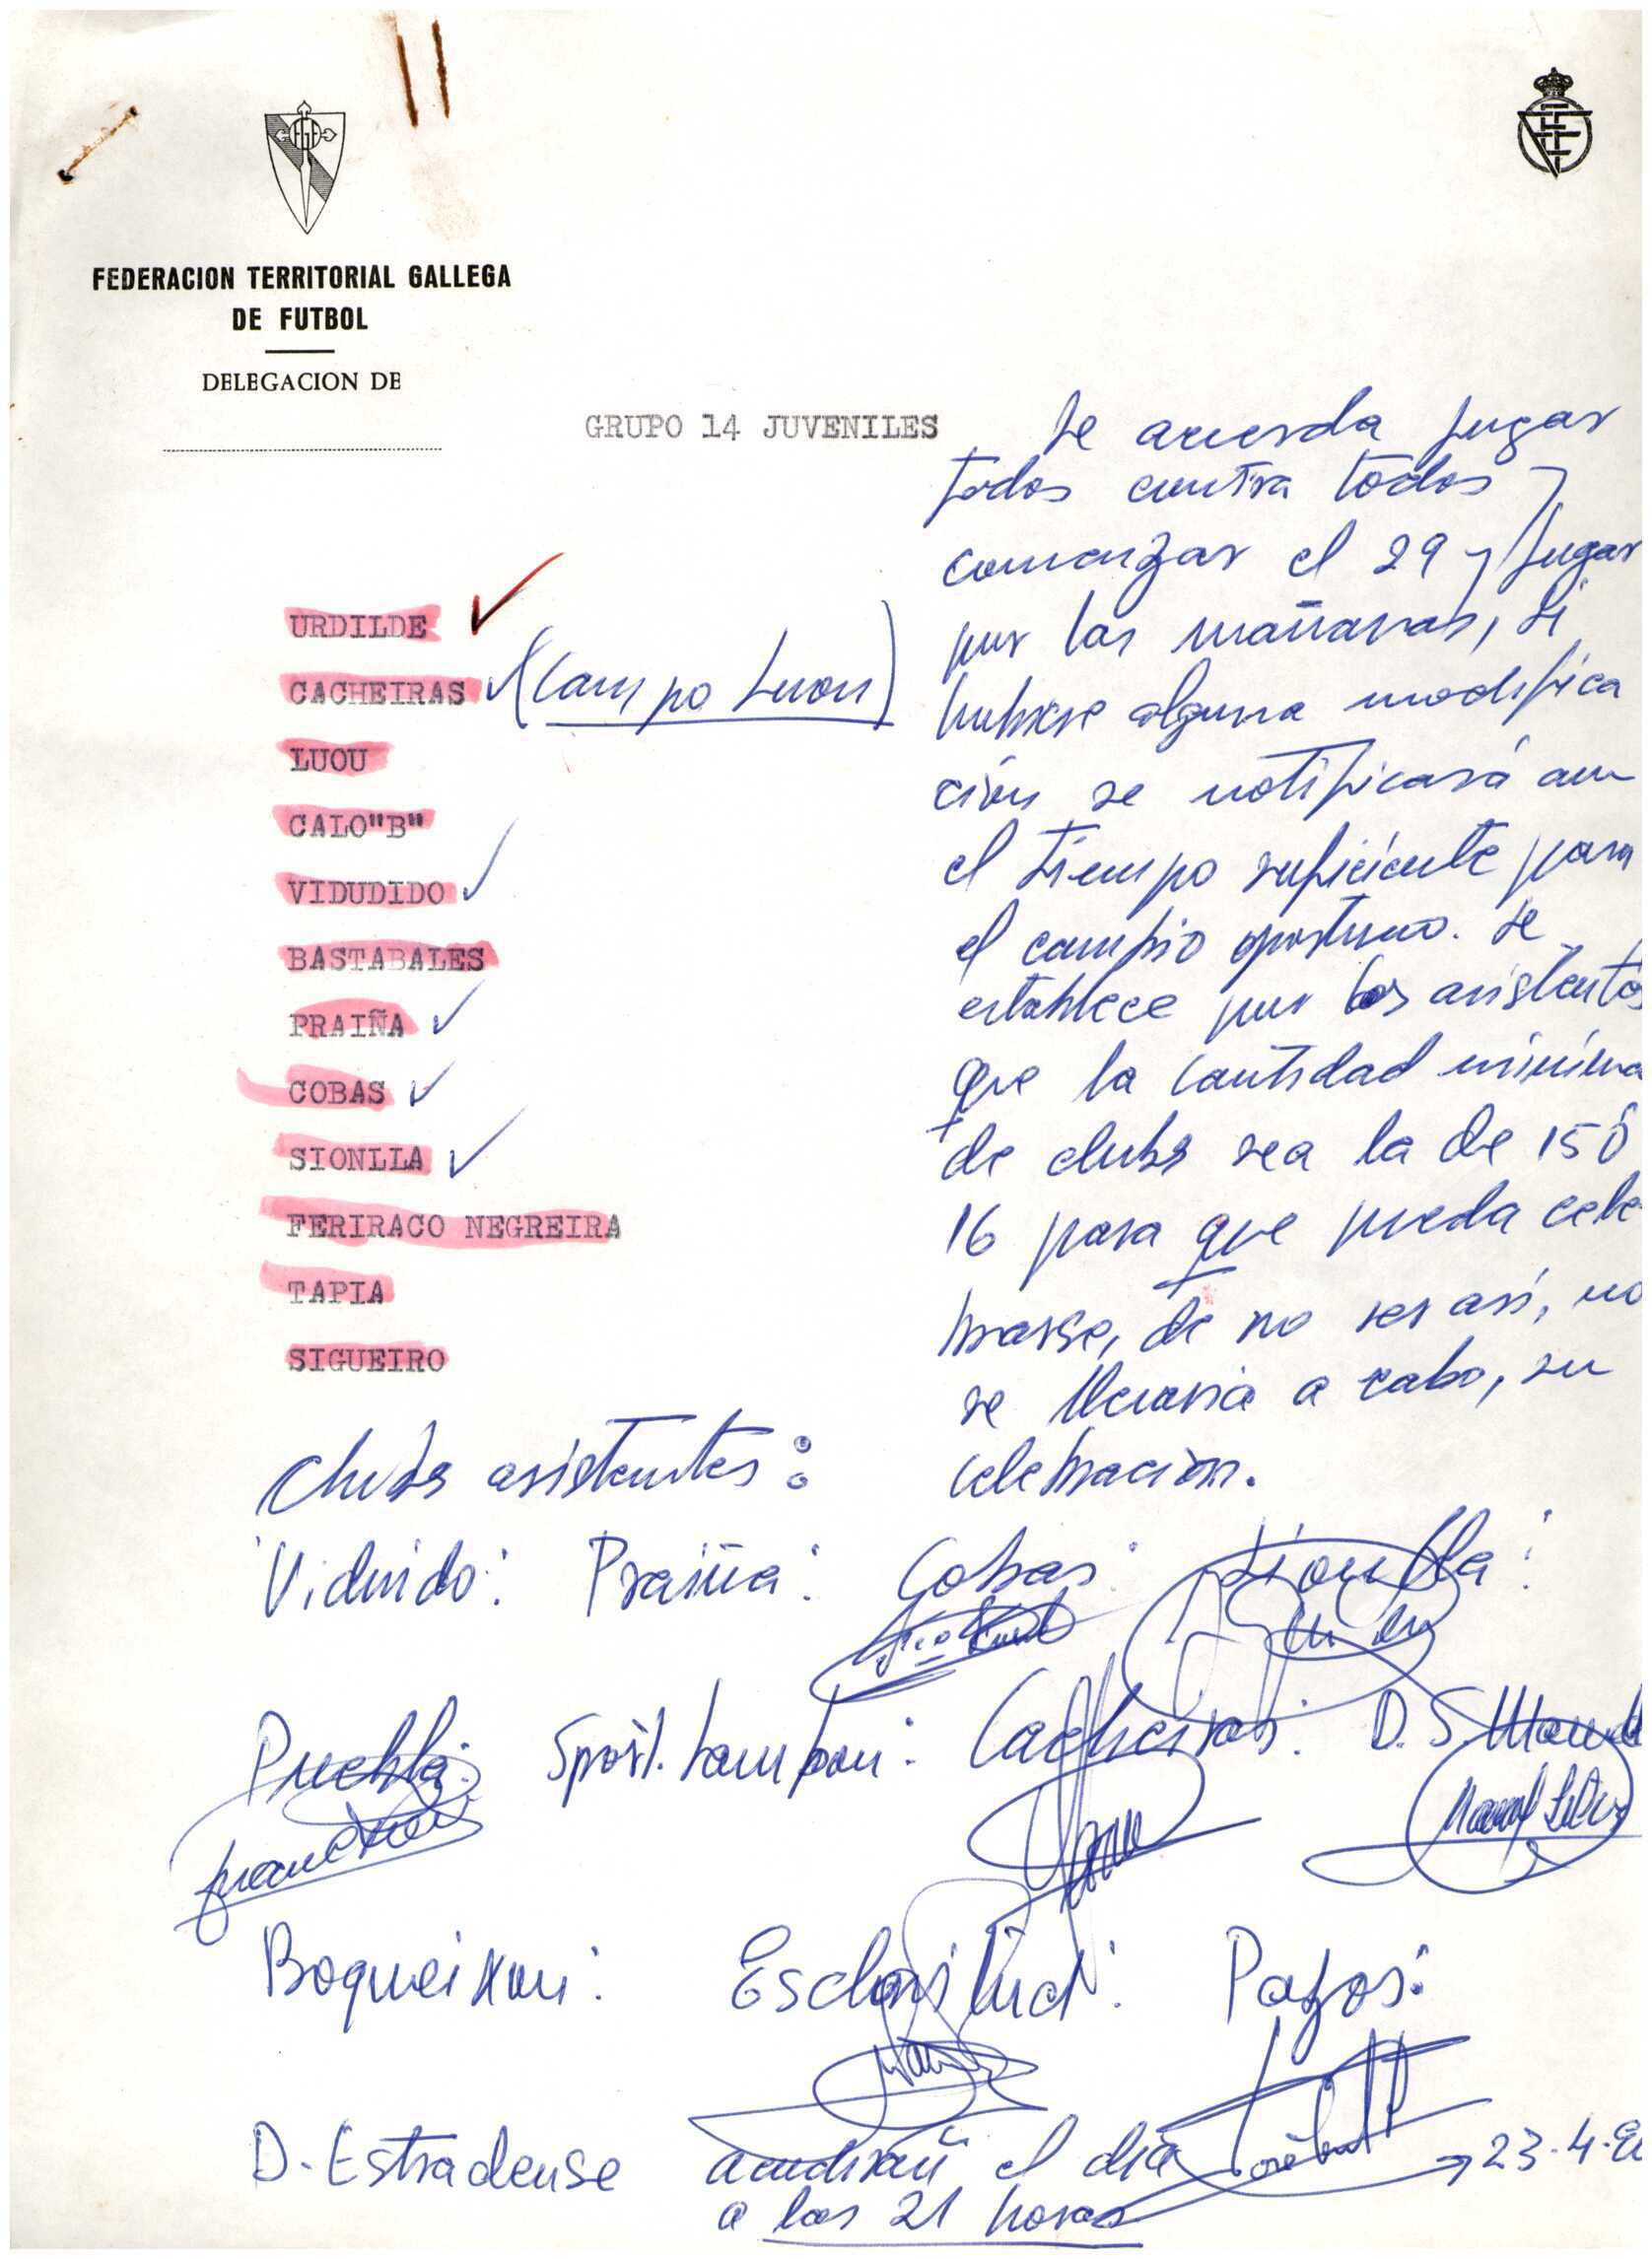 FEDERACION TERRITORIAL GALLEGA
DE FUTBOL
DELEGACION DE
GRUPO 14 JUVENILES
URDILDE
CACHEIRAS (Campo Luou)
LUOU
CALO"B"
VIDUDIDO
BASTABALES
PRAIÑA
COBAS
SIONLLA
FERIRACO NEGREIRA
TAPIA
SIGUEIRO
Se acuerda jugar
todos contra todos y
comenzar el 29 y jugar
por las mañanas, si
hubiese alguna modifica
ción se notificará con
el tiempo suficiente para
el cambio oportuno. Se
establece por los asistentes
que la cantidad minima
de clubs sea la de 15 ó
16 para que pueda cele-
brarse, de no ser así, no
se llevaria a cabo, su
celebracion.
Clubs asistentes:
Viduido: Praiña: Cobas: Sionlla:
Puebla: Sport. Lampon: Cacheiras: D. S.
Boqueixon: Esclavitud: Pazos:
D. Estradense acudirán el dia 23-4-
a las 21 horas